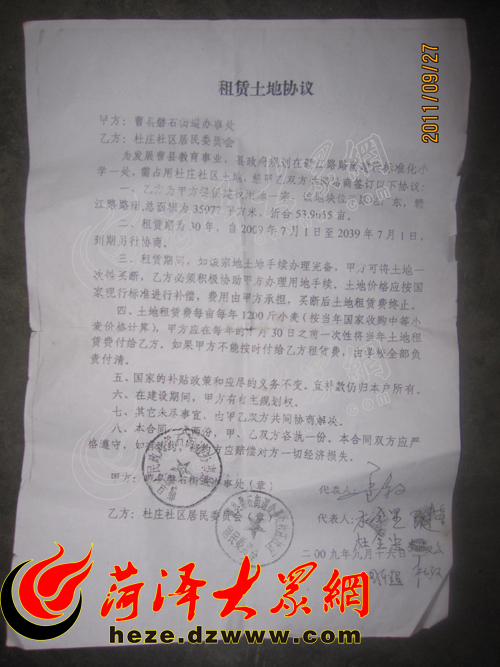 2011/09/27
租赁土地协议
甲方：曹县磐石街道办事处
乙方：杜庄社区居民委员会
为发展曹县教育事业，县政府规划在 江路路 标准化小
学一处，需占用杜庄社区土地，经甲乙双方 商签订以下协议：
一、乙方为甲方提供 地一宗，该地块位于 东，
江路路南，总面积为35977平方米，折合53.9655亩。
二、租赁期为30年，自2009年7月1日至2039年7月1日，
到期另行协商。
三、租赁期间，如该宗地土地手续办理完备，甲方可将土地一
次性买断，乙方必须积极协助甲方办理用地手续。土地价格应按国
家现行标准进行补偿，费用由甲方承担，买断后土地租赁费终止。
四、土地租赁费每亩每年1200斤小麦（按当年国家收购中等小
麦价格计算），甲方应在每年的 月30日之前一次性将当年土地租
赁费付给乙方。如果甲方不能按时付给乙方租赁费，由 全部负
责付清。
五、国家的补贴政策和应尽的义务不变，亩补数仍归本户所有。
六、在建设期间，甲方有自主规划权。
七、其它未尽事宜，由甲乙双方共同协商解决。
八、本合同一式两份，甲、乙双方各执一份。本合同双方应严
格遵守，如有 方应赔偿对方一切经济损失。
甲方： 磐石街道办事处（章）
代表人：
乙方：杜庄社区居民委员会（章）
代表人：
二00九年九月十六日
菏泽大眾網
heze.dzwww.com